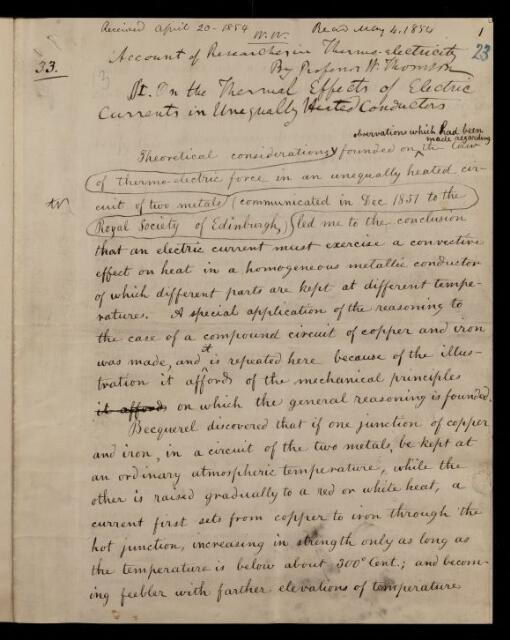 Received April 20 - 1854 Read May 4, 1854 1
W. W.
23
33. Account of Researches in Thermo-electricity
By Professor W. Thomson
§I. On the Thermal Effects of Electric
Currents in Unequally Heated Conductors
observations which had been
made regarding
Theoretical considerations founded on the law
of thermo-electric force in an unequally heated cir-
cuit of two metals (communicated in Dec 1851 to the
Royal Society of Edinburgh,) led me to the conclusion
that an electric current must exercise a convective
effect on heat in a homogeneous metallic conductor
of which different parts are kept at different tempe-
ratures. A special application of the reasoning to
the case of a compound circuit of copper and iron
was made, and it is repeated here because of the illus-
tration it affords of the mechanical principles
it affords on which the general reasoning is founded.
Becquerel discovered that if one junction of copper
and iron, in a circuit of the two metals, be kept at
an ordinary atmospheric temperature, while the
other is raised gradually to a red or white heat, a
current first sets from copper to iron through the
hot junction, increasing in strength only as long as
the temperature is below about 300° Cent.; and becom-
ing feebler with farther elevations of temperature